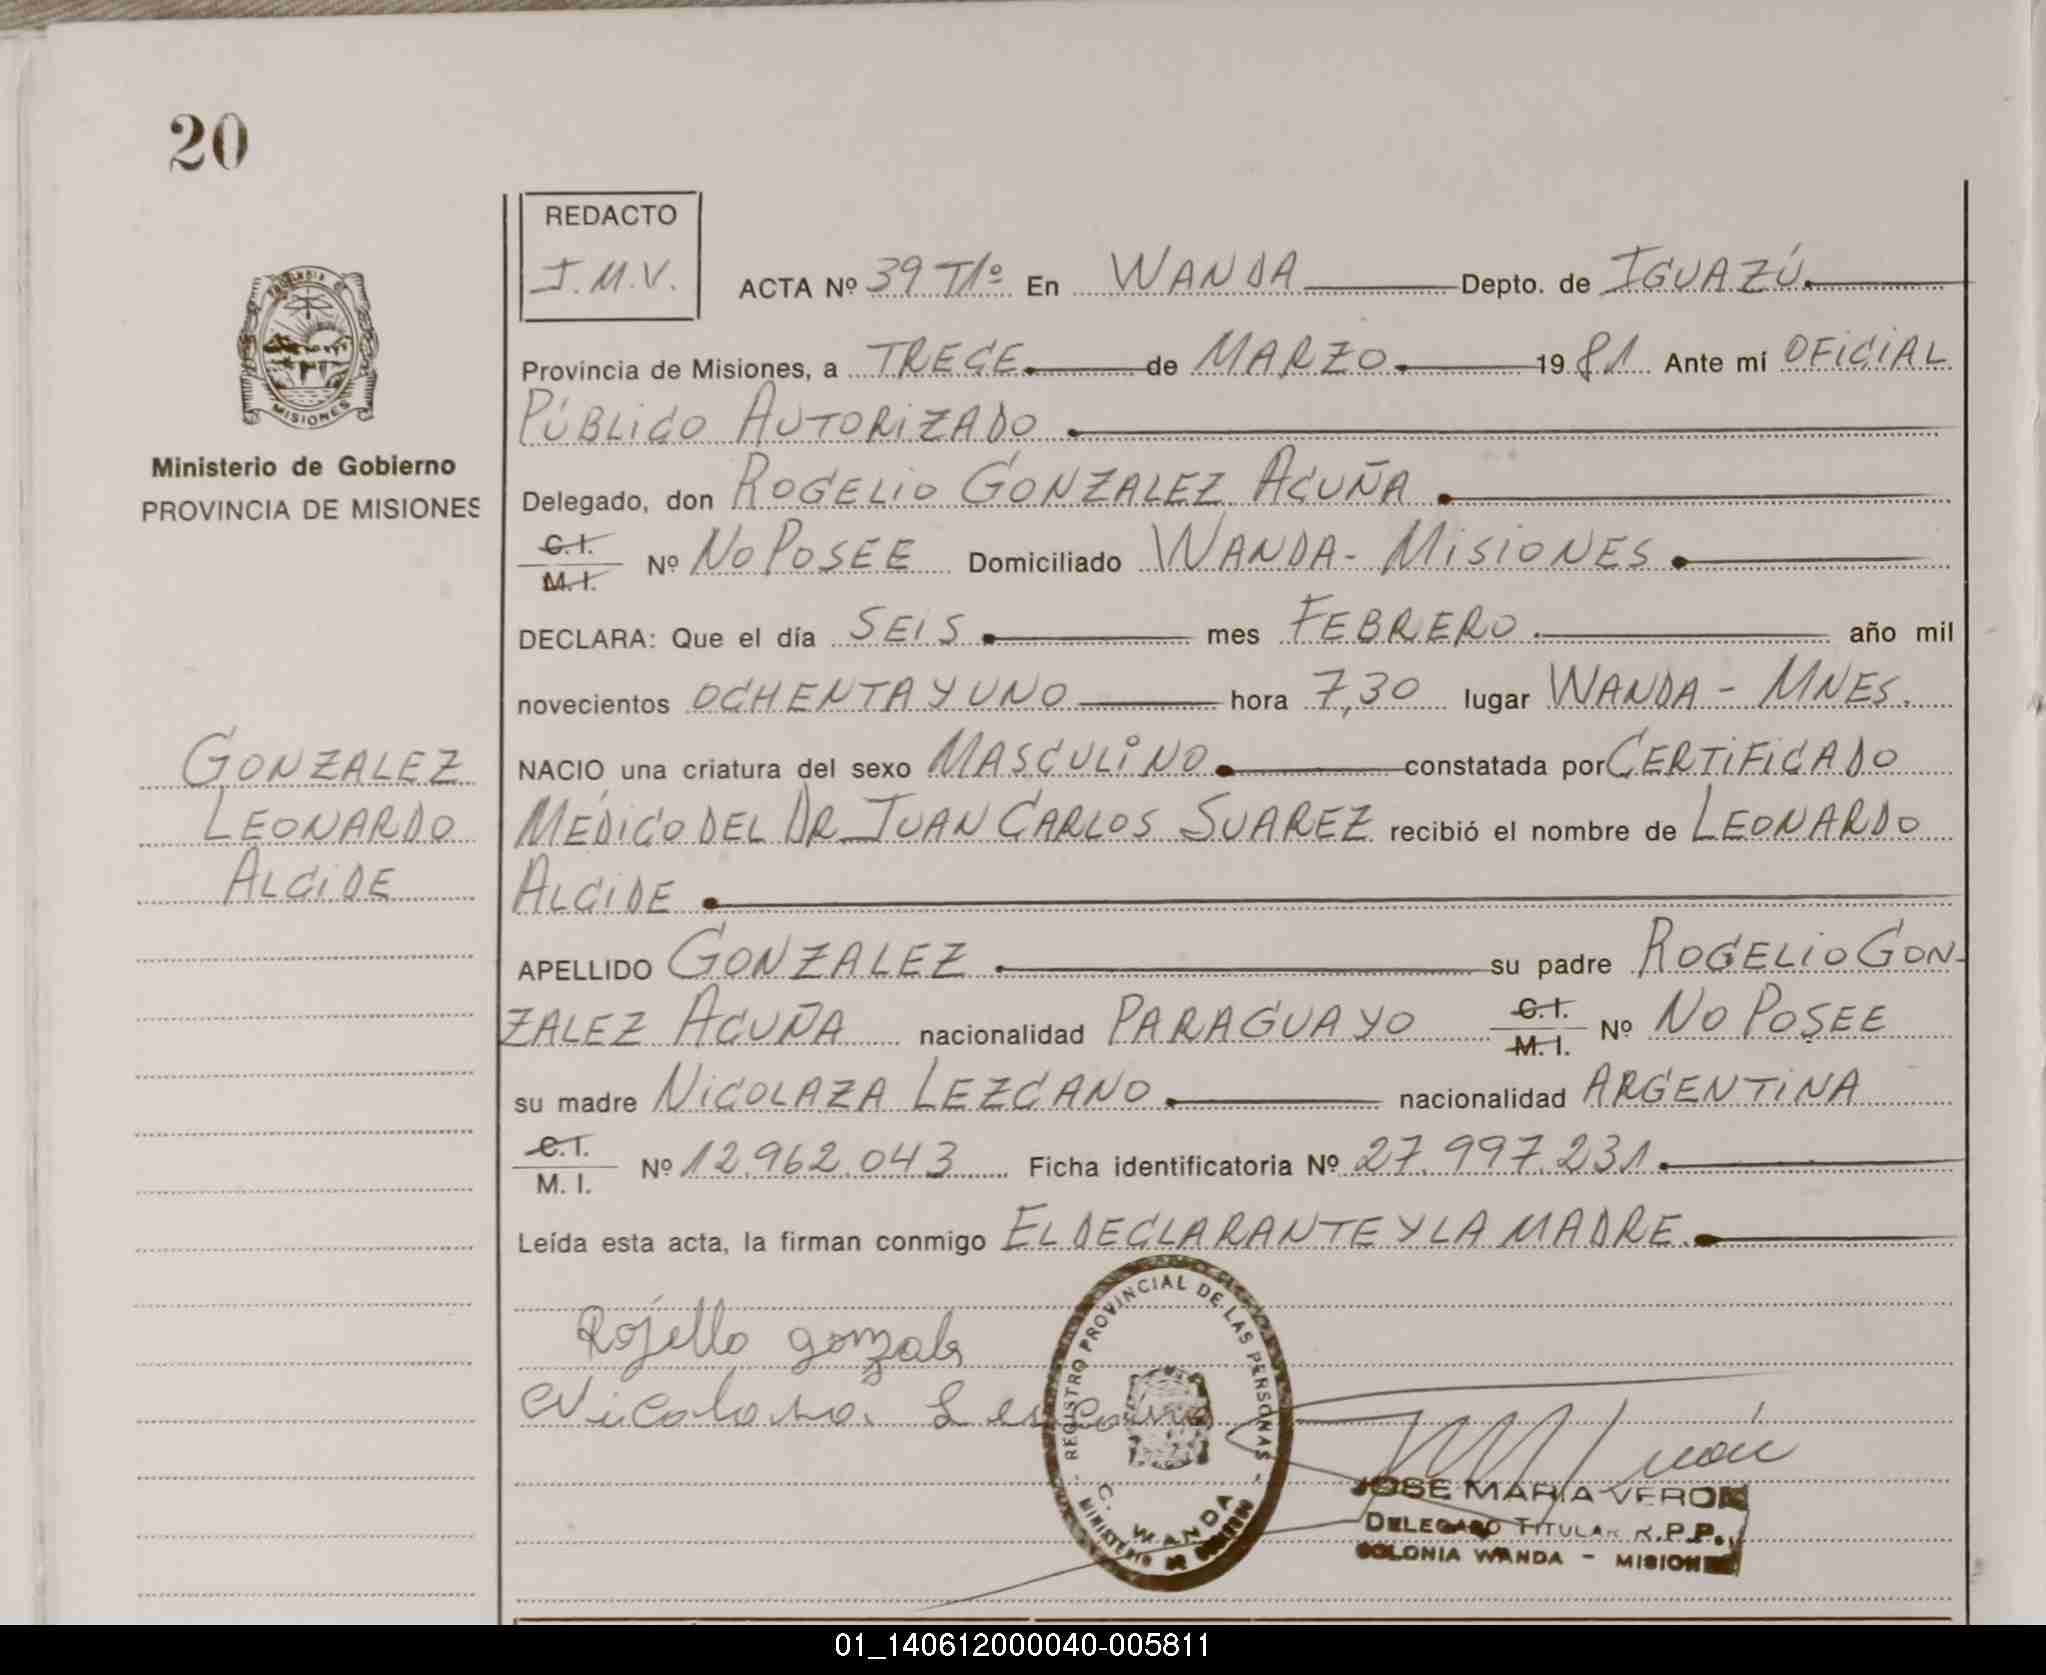 20
REDACTO
J.M.V.
ACTA Nº 39 Tº1º En WANDA Depto. de IGUAZÚ
Provincia de Misiones, a TRECE de MARZO 1981 Ante mí OFICIAL
PÚBLICO AUTORIZADO
Delegado, don ROGELIO GONZALEZ ACUÑA
C.I.
M.I. Nº NO POSEE Domiciliado WANDA - MISIONES
DECLARA: Que el día SEIS mes FEBRERO año mil
novecientos OCHENTA Y UNO hora 7,30 lugar WANDA - MNES.
NACIO una criatura del sexo MASCULINO constatada por CERTIFICADO
MÉDICO DEL DR. JUAN CARLOS SUAREZ recibió el nombre de LEONARDO
ALCIDE
APELLIDO GONZALEZ su padre ROGELIO GON-
ZALEZ ACUÑA nacionalidad PARAGUAYO C.I. M.I. Nº NO POSEE
su madre NICOLAZA LEZCANO nacionalidad ARGENTINA
C.I.
M.I. Nº 12.962.043 Ficha identificatoria Nº 27.997.231
Leída esta acta, la firman conmigo EL DECLARANTE Y LA MADRE
Rojello gonzale
Nicolasa Lescano
MISIONES
Ministerio de Gobierno
PROVINCIA DE MISIONES
GONZALEZ
LEONARDO
ALCIDE
REGISTRO PROVINCIAL DE LAS PERSONAS
C. WANDA
MINISTERIO DE GOBIERNO
JOSE MARIA VERON
DELEGADO TITULAR R.P.P.
COLONIA WANDA - MISIONES
01_140612000040-005811